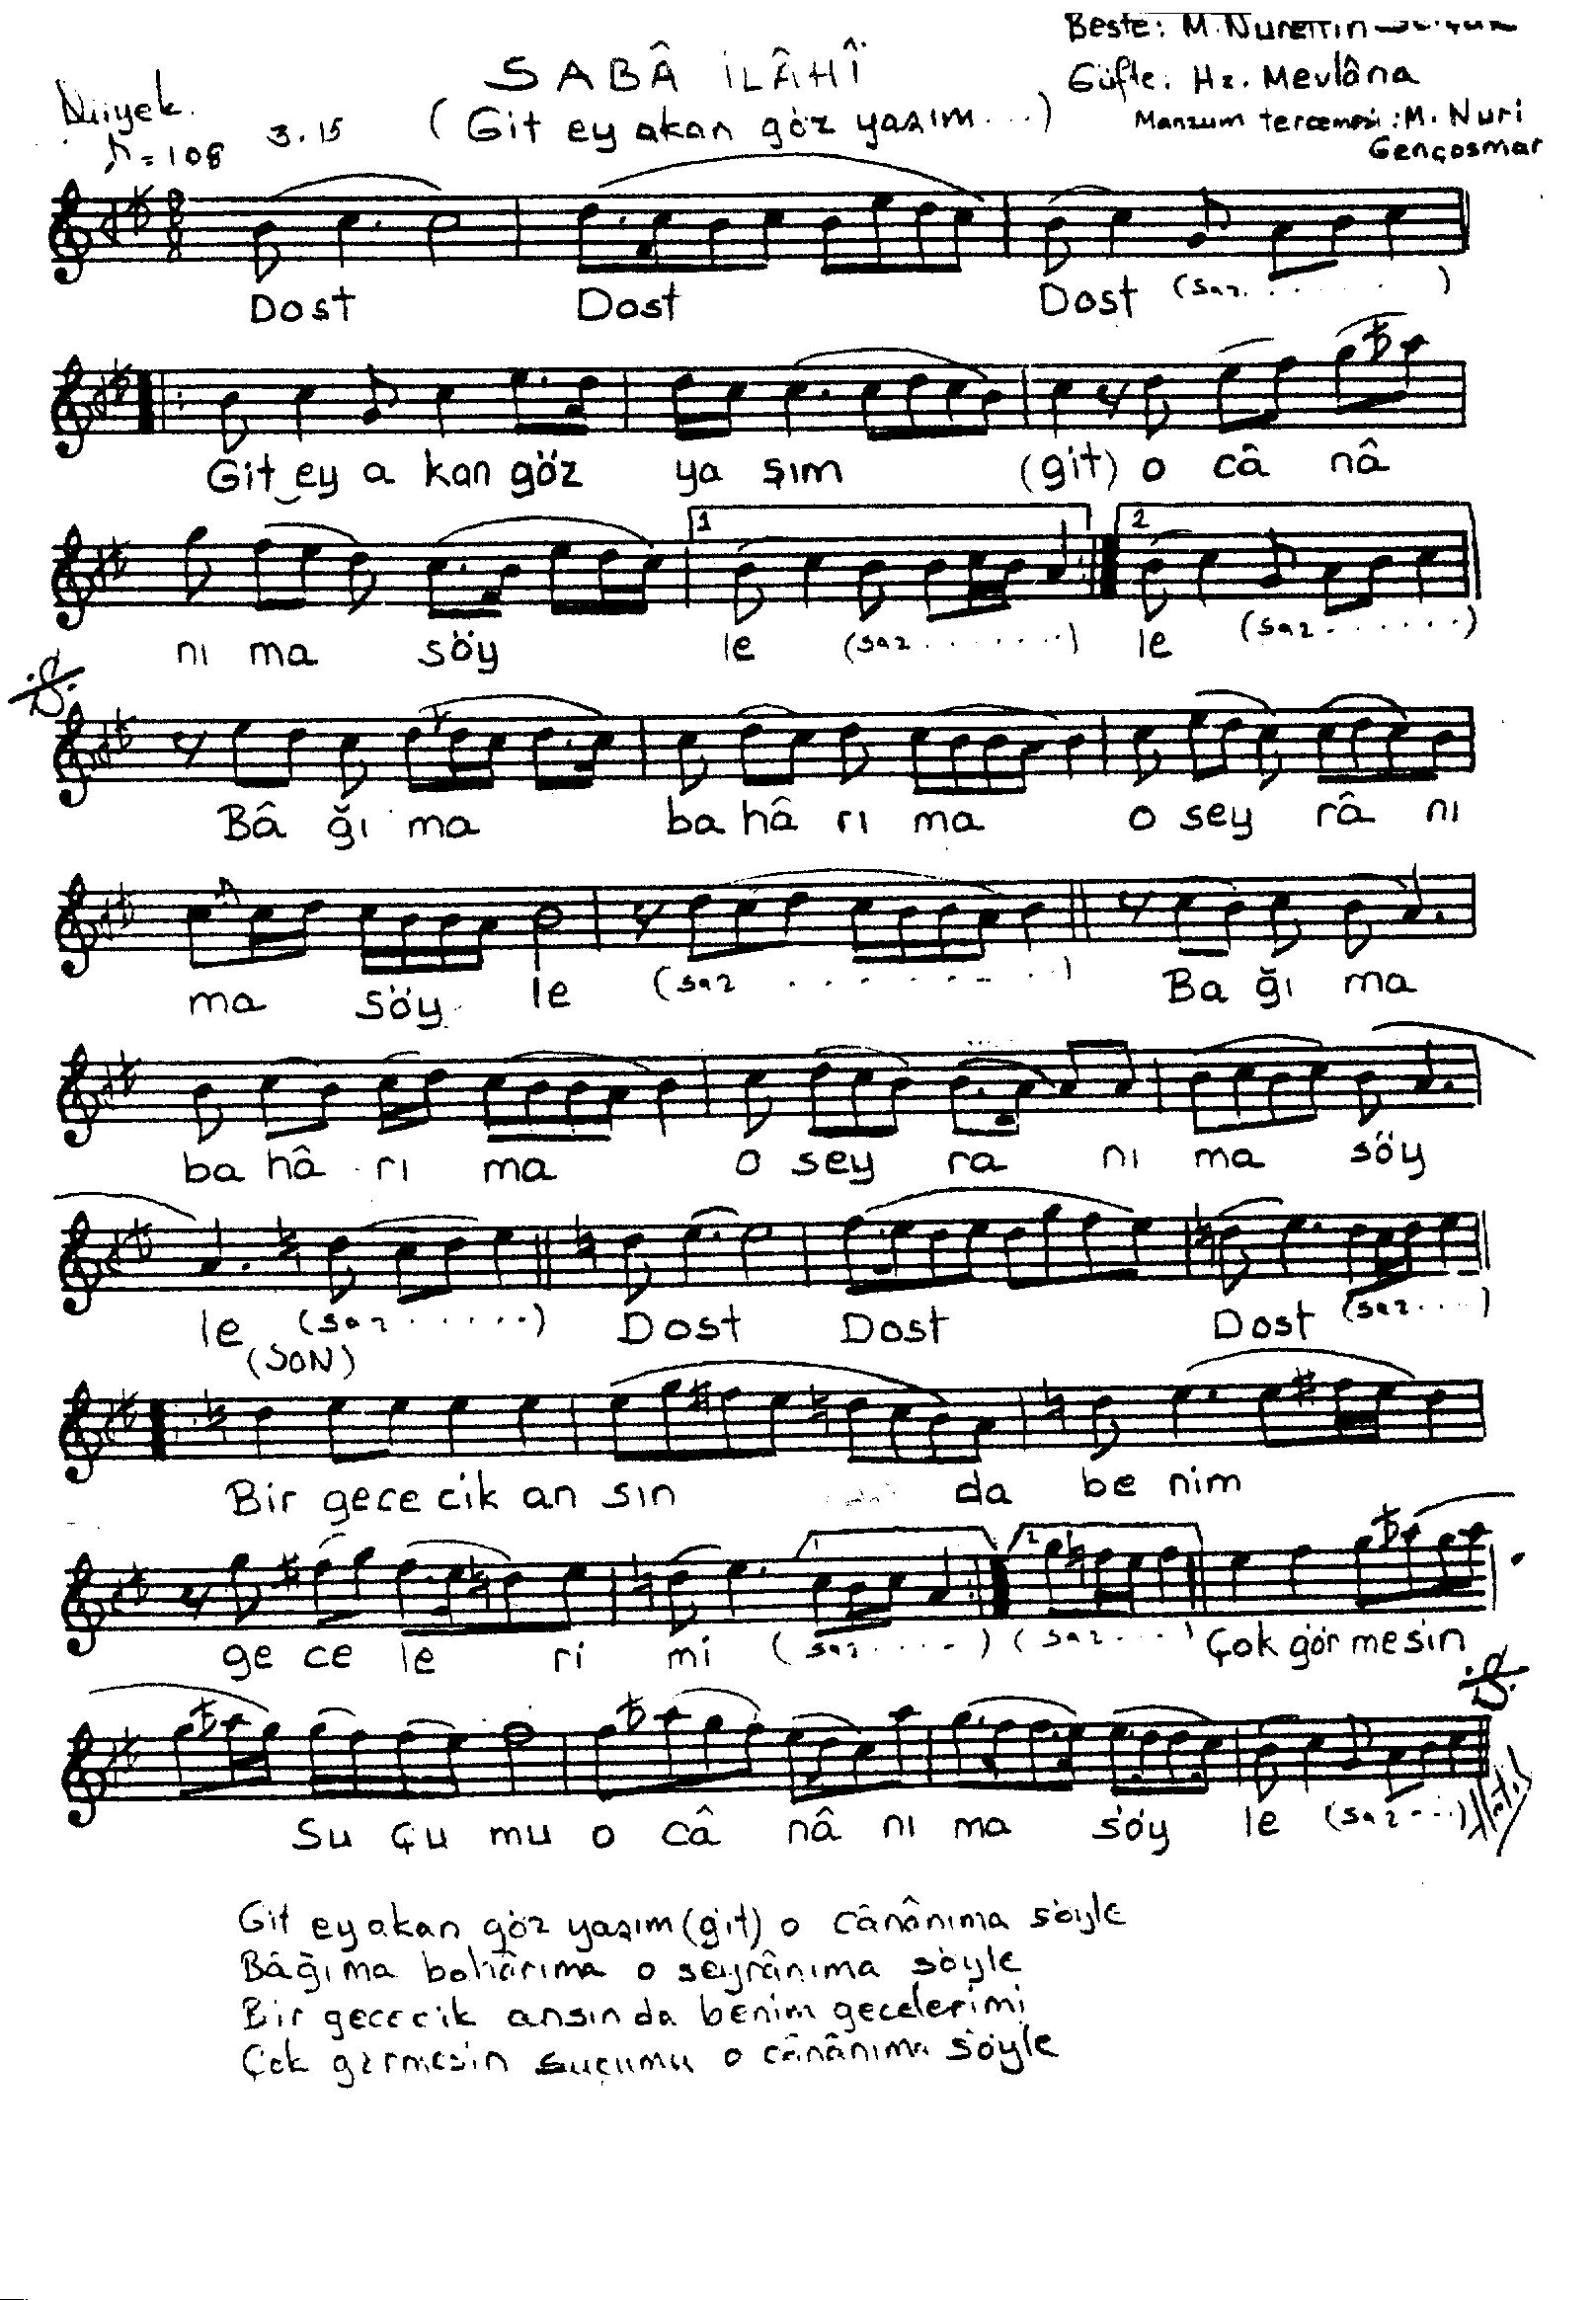 Beste: M. Nurettin
SABÂ İLÂHÎ
Güfte: Hz. Mevlâna
Düyek
(Git ey akan göz yaşım...)
Manzum tercemesi: M. Nuri
♪=108 3.15
Gençosmar
Dost Dost Dost (saz......)
Git ey a kan göz ya şım (git) o câ nâ
1 2
nı ma söy le (saz.......) le (saz.......)
Bâ ğı ma ba hâ rı ma o sey râ nı
ma söy le (saz.......) Ba ğı ma
ba hâ rı ma o sey ra nı ma söy
le (saz......) Dost Dost Dost (saz....)
(SON)
Bir gece cik an sın da be nim
1 2
ge ce le ri mi (saz.....) (saz....) Çok gör mesin
Su çu mu o câ nâ nı ma söy le (saz...)
Git ey akan göz yaşım (git) o cânânıma söyle
Bâğıma bahârıma o seyrânıma söyle
Bir gececik ansında benim gecelerimi
Çok görmesin suçumu o cânânıma söyle